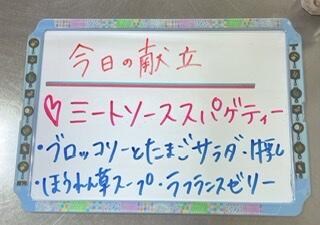 今日の献立
♡ミートソーススパゲティー
・ブロッコリーとたまごサラダ・
・ほうれん草スープ・ラフランスゼリー